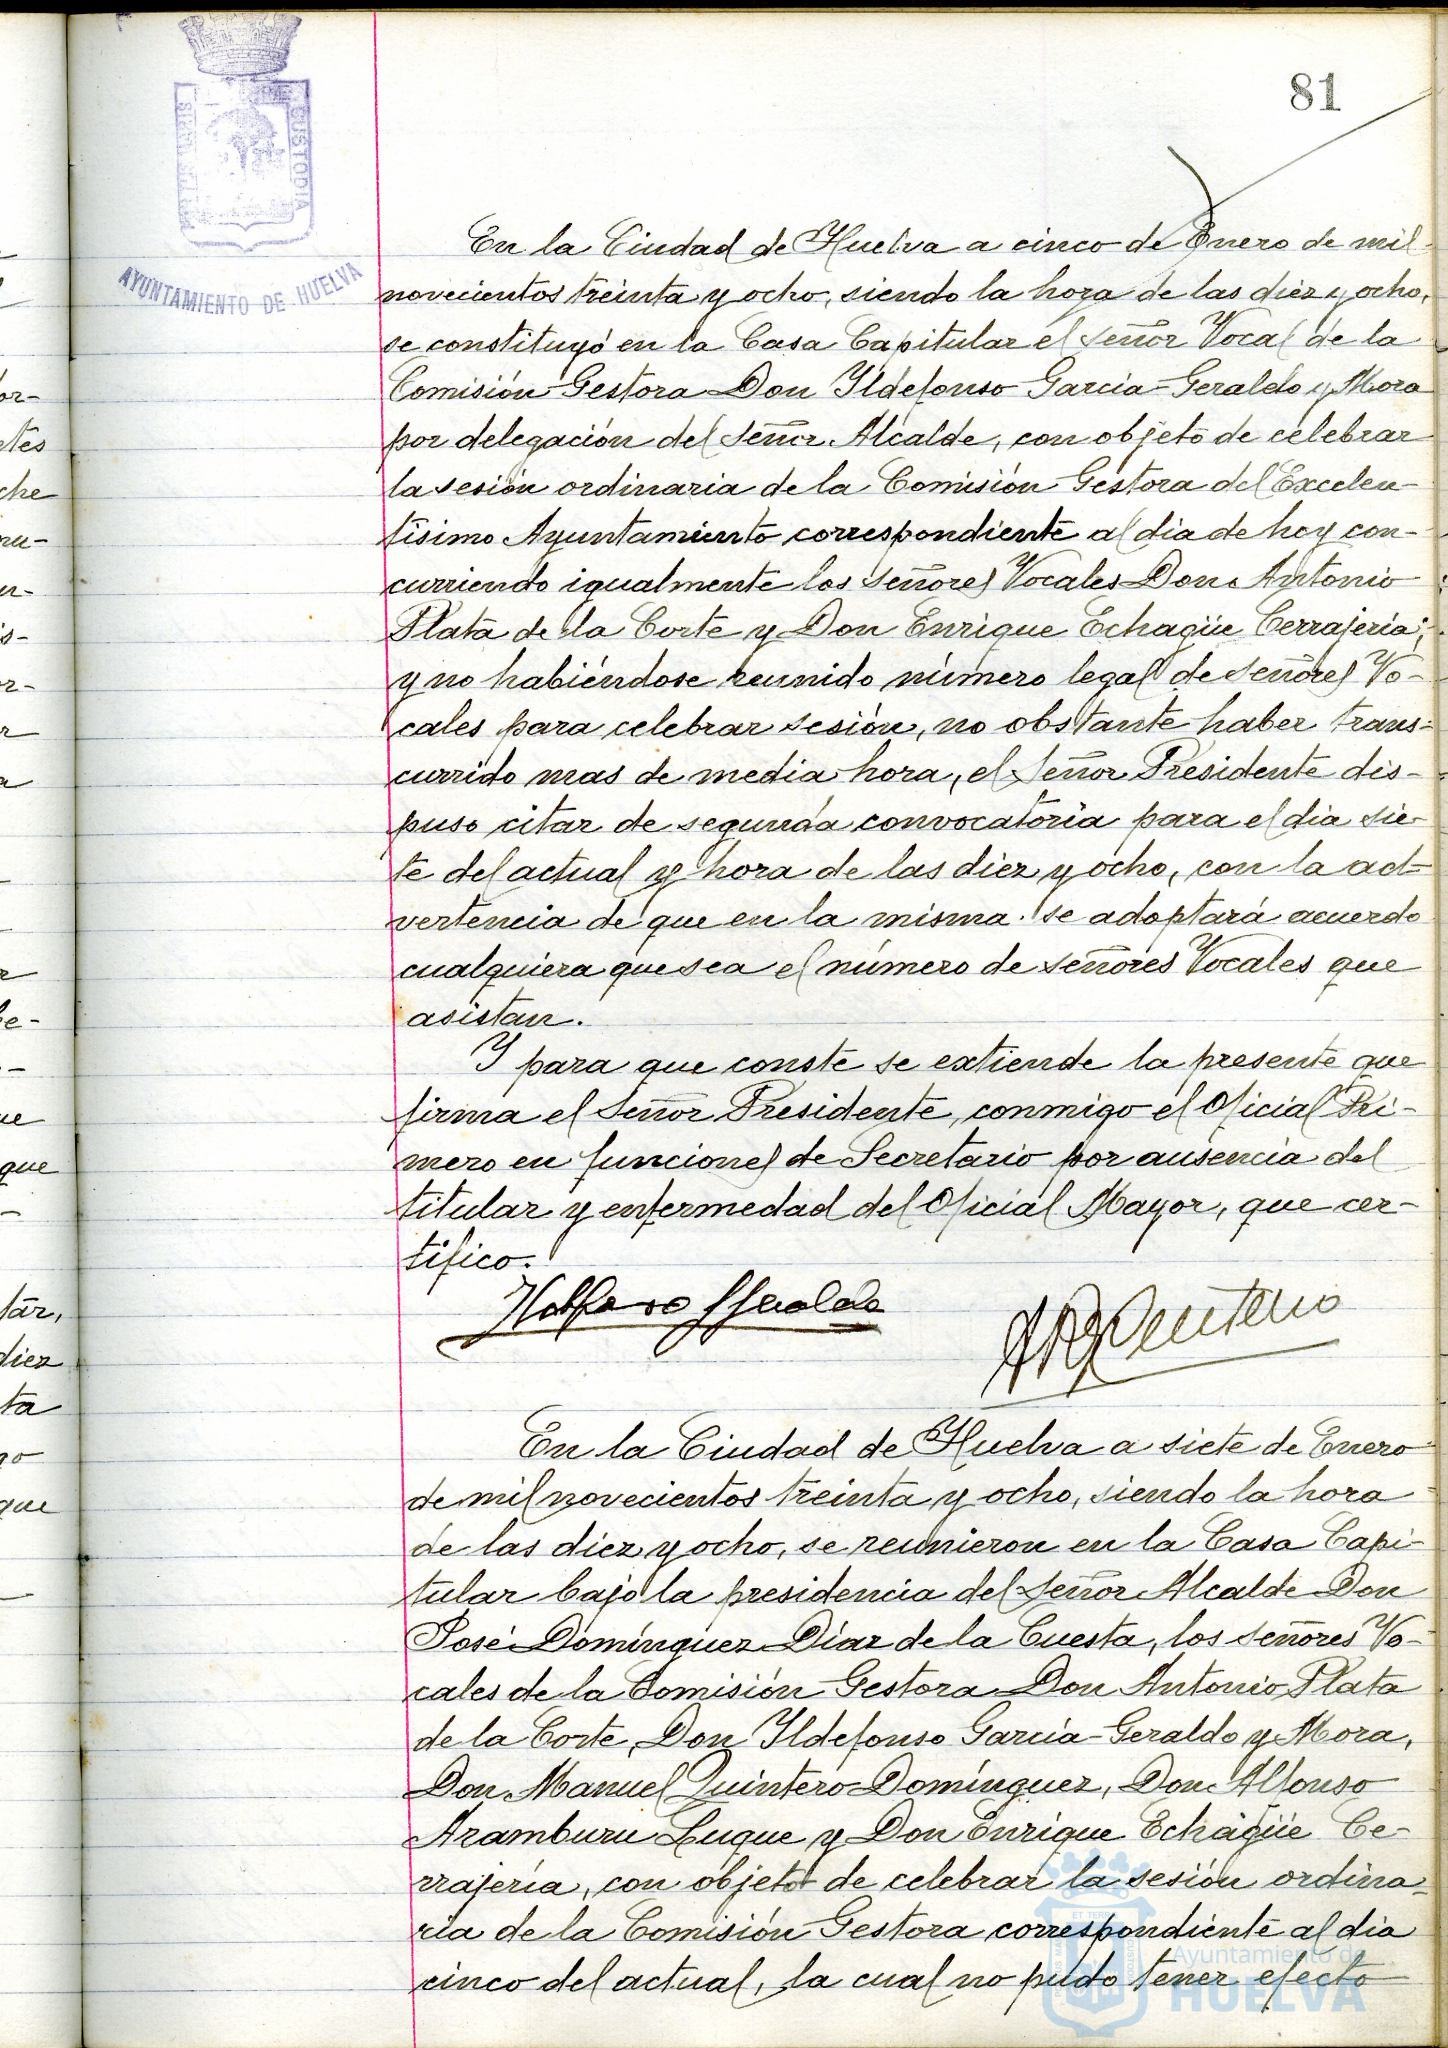 81
AYUNTAMIENTO DE HUELVA
En la Ciudad de Huelva a cinco de Enero de mil
novecientos treinta y ocho, siendo la hora de las diez y ocho,
se constituyó en la Casa Capitular el señor Vocal de la
Comisión Gestora Don Ildefonso García-Geraldo y Mora
por delegación del señor Alcalde, con objeto de celebrar
la sesión ordinaria de la Comisión Gestora del Excelen-
tísimo Ayuntamiento correspondiente al dia de hoy con-
curriendo igualmente los señores Vocales Don Antonio
Plata de la Corte y Don Enrique Echagüe Cerrajería;
y no habiéndose reunido número legal de señores Vo-
cales para celebrar sesión, no obstante haber trans-
currido mas de media hora, el señor Presidente dis-
puso citar de segunda convocatoria para el dia sie-
te del actual y hora de las diez y ocho, con la ad-
vertencia de que en la misma se adoptará acuerdo
cualquiera que sea el número de señores Vocales que
asistan.
Y para que conste se extiende la presente que
firma el señor Presidente, conmigo el Oficial Pri-
mero en funciones de Secretario por ausencia del
titular y enfermedad del Oficial Mayor, que cer-
tifico.
En la Ciudad de Huelva a siete de Enero
de mil novecientos treinta y ocho, siendo la hora
de las diez y ocho, se reunieron en la Casa Capi-
tular bajo la presidencia del señor Alcalde Don
José Domínguez Díaz de la Cuesta, los señores Vo-
cales de la Comisión Gestora Don Antonio Plata
de la Corte, Don Ildefonso García-Geraldo y Mora,
Don Manuel Quintero Domínguez, Don Alfonso
Aramburu Luque y Don Enrique Echagüe Ce-
rrajería, con objeto de celebrar la sesión ordina-
ria de la Comisión Gestora correspondiente al dia
cinco del actual, la cual no pudo tener efecto
Ayuntamiento de
HUELVA